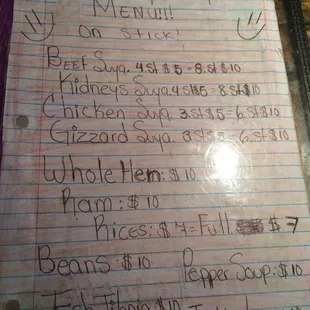 MENU!!!
on STICK!
BEEF Suya. 4.st $5 - 8.st $10
Kidneys Suya 4 st $5 - 8 st $10
Chicken Suya. 3.st $5 - 6.st $10
Gizzard Suya. 3 st $5 - 6.st $10
Whole Hen: $10
Ram: $10
Rices: $7 = Full $7
Beans: $10 Pepper Soup: $10
Fish Tilapia $10